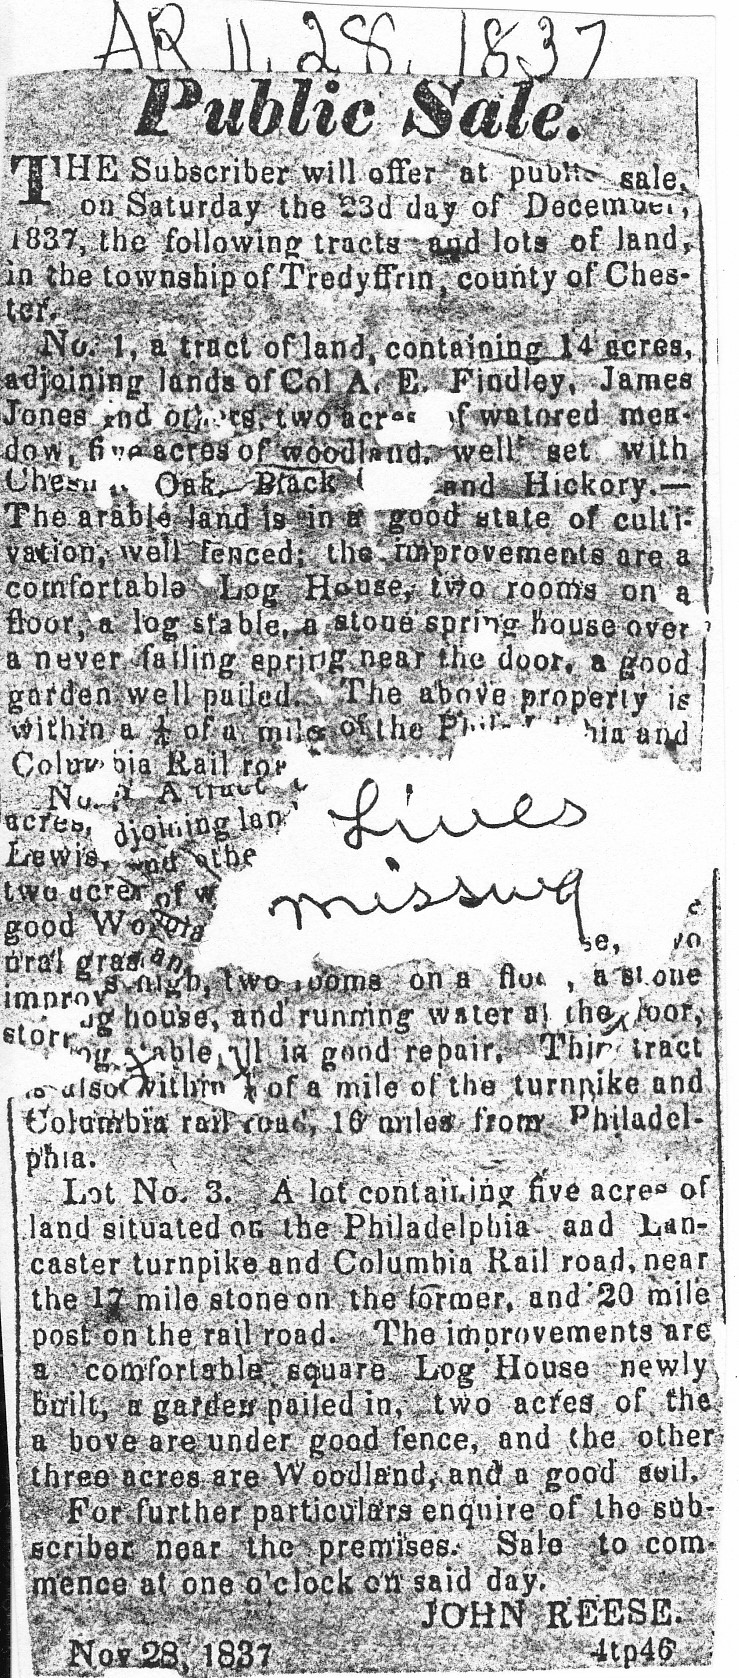 AR 11. 28. 1837
Public Sale.
THE Subscriber will offer at public sale,
on Saturday the 23d day of December,
1837, the following tracts and lots of land,
in the township of Tredyffrin, county of Ches-
ter.
No. 1, a tract of land, containing 14 acres,
adjoining lands of Col A. E. Findley, James
Jones and others, two acres of watored mea-
dow, five acres of woodland, well set with
Oak, Black and Hickory.—
The arable land is in a good state of culti-
vation, well fenced; the improvements are a
comfortable Log House, two rooms on a
floor, a log stable, a stone spring house over
a never failing spring near the door, a good
garden well pailed. The above property is
within a ¼ of a mile of the Philadelphia and
Columbia Rail
No. A tract
acres, djoining
Lewis, and
two acres of
good
Lines
missing
se,
improv high, two rooms on a floor, a stone
house, and running water at the door,
all in good repair. This tract
is also within ¼ of a mile of the turnpike and
Columbia rail road, 16 miles from Philadel-
phia.
Lot No. 3. A lot containing five acres of
land situated on the Philadelphia and Lan-
caster turnpike and Columbia Rail road, near
the 17 mile stone on the former, and 20 mile
post on the rail road. The improvements are
a comfortable square Log House newly
built, a garden pailed in, two acres of the
a bove are under good fence, and the other
three acres are Woodland, and a good soil.
For further particulars enquire of the sub-
scriber near the premises. Sale to com-
mence at one o'clock on said day.
JOHN REESE.
Nov 28, 1837 4tp46